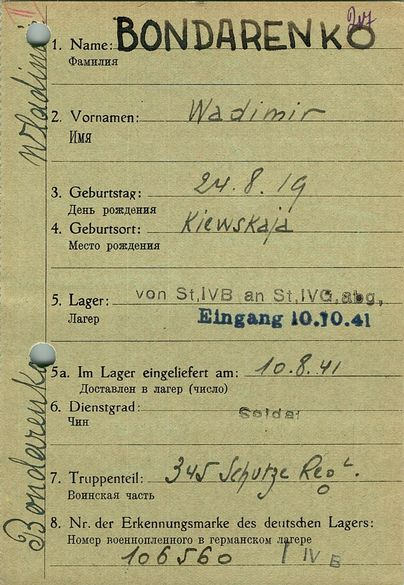 217
1. Name: BONDARENKO
Фамилия
2. Vornamen: Wadimir
Имя
3. Geburtstag: 24.8.19
День рождения
4. Geburtsort: Kiewskaja
Место рождения
5. Lager: von St,IVB an St,IVG,abg,
Лагер Eingang 10.10.41
5a. Im Lager eingeliefert am: 10.8.41
Доставлен в лагер (число)
6. Dienstgrad: Soldat
Чин
7. Truppenteil: 345 Schütze Reg
Воинская часть
8. Nr. der Erkennungsmarke des deutschen Lagers:
Номер военнопленного в германском лагере
106560 IV B
Bondarenko Wladimir